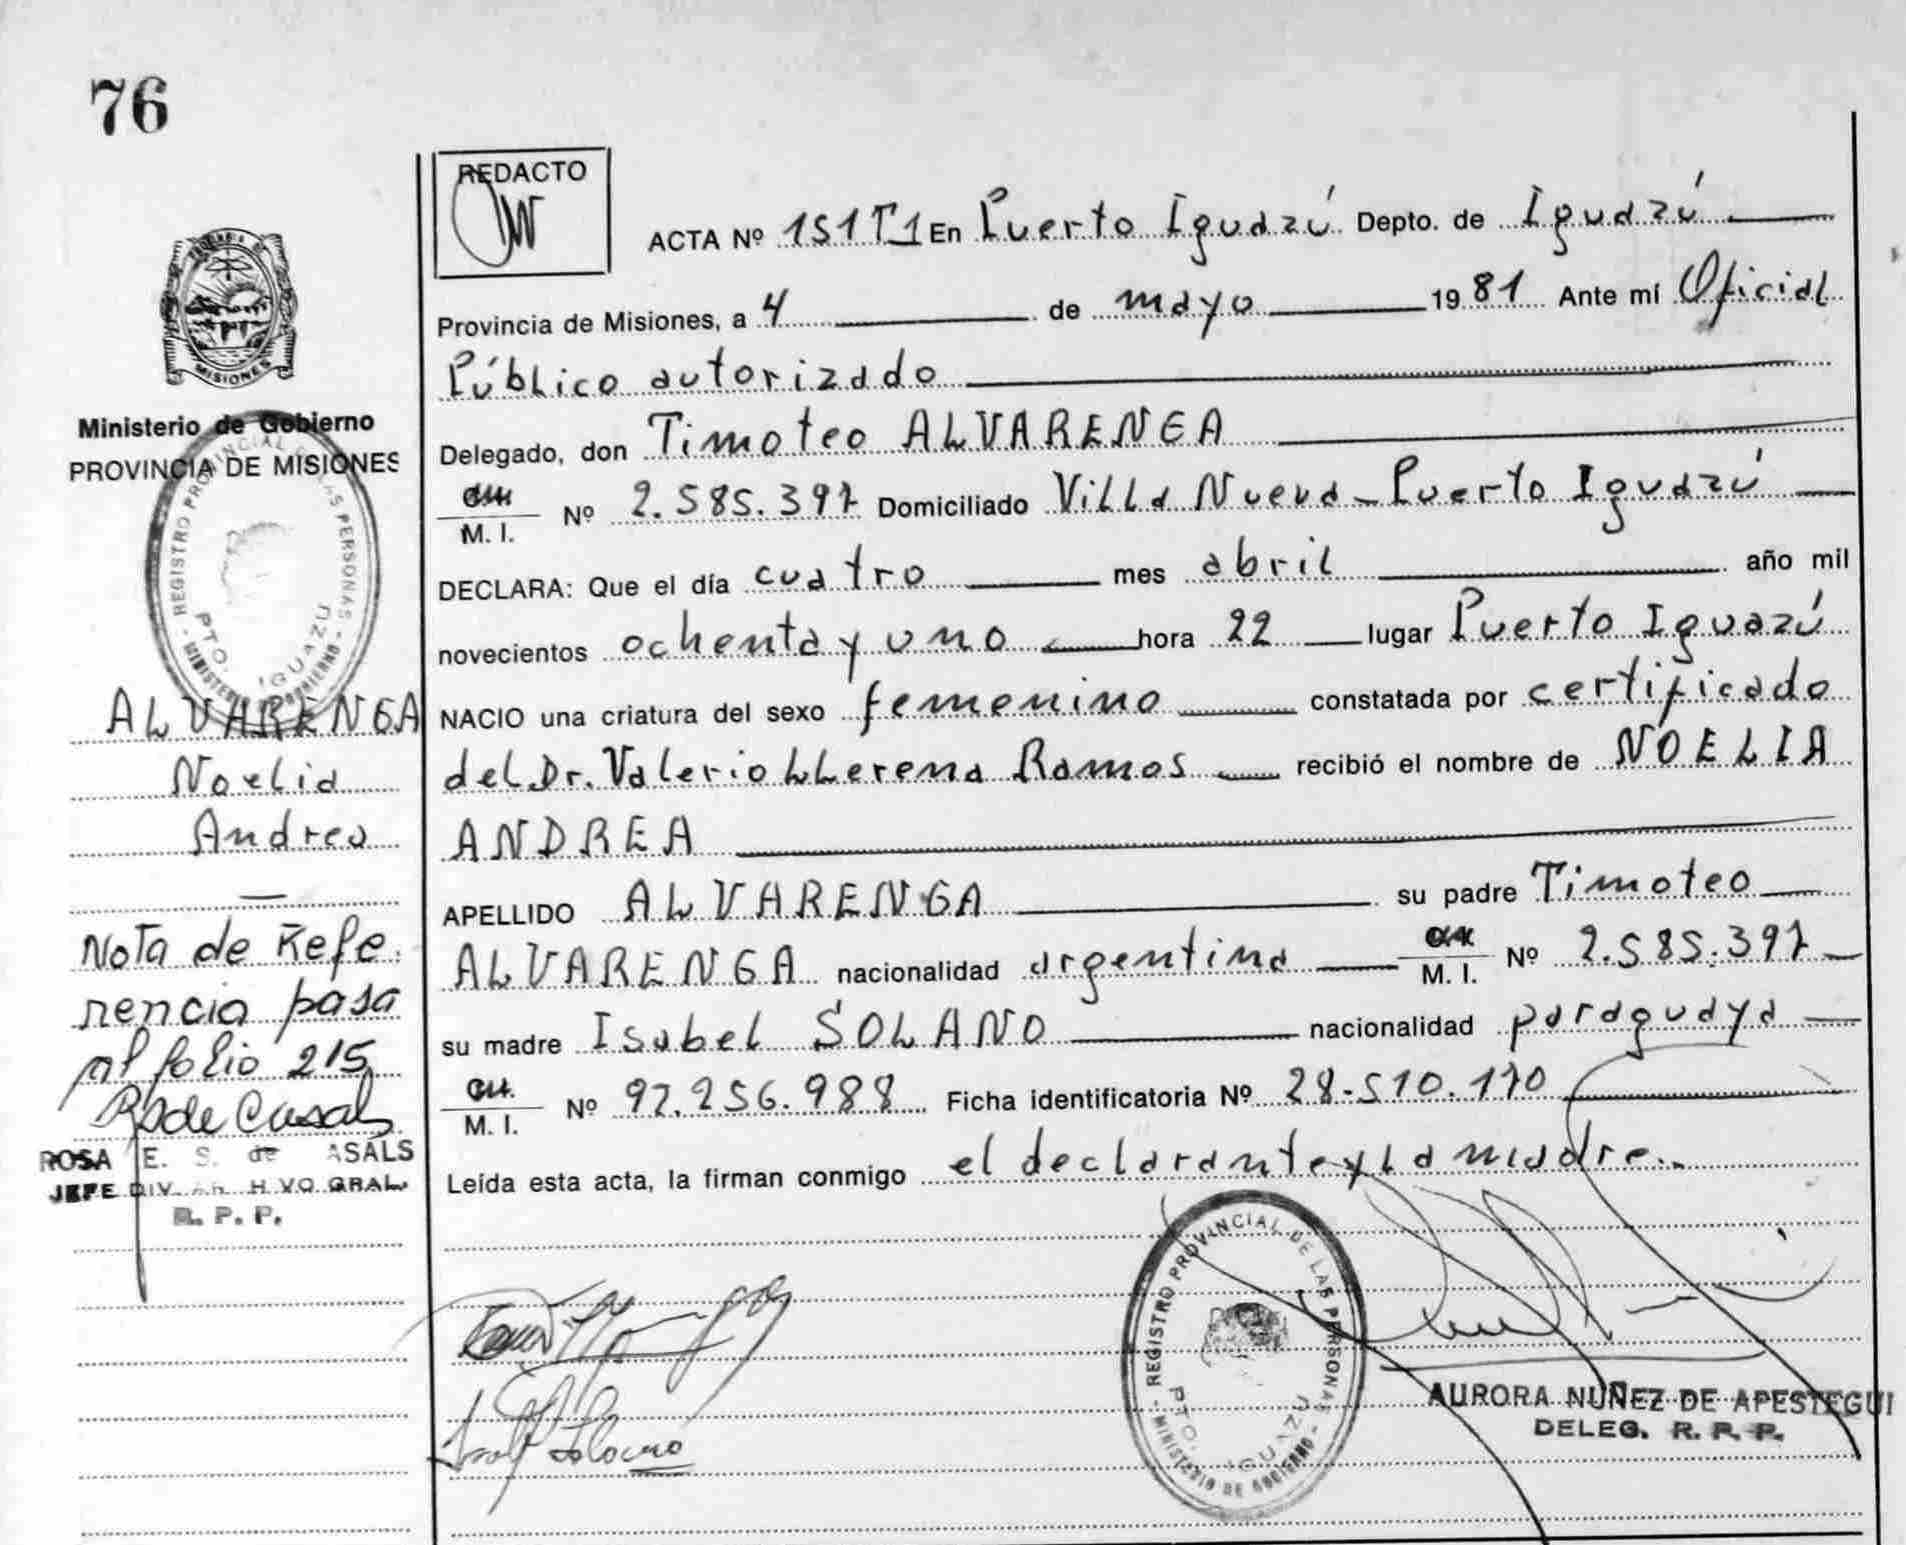 76
REDACTO
ACTA Nº 151T1 En Puerto Iguazú Depto. de Iguazú
Provincia de Misiones, a 4 de mayo 1981 Ante mí Oficial
Público autorizado
Delegado, don Timoteo ALVARENGA
M. I. Nº 2.585.397 Domiciliado Villa Nueva - Puerto Iguazú
DECLARA: Que el día cuatro mes abril año mil
novecientos ochenta y uno hora 22 lugar Puerto Iguazú
NACIO una criatura del sexo femenino constatada por certificado
del Dr. Valerio LLerena Ramos recibió el nombre de NOELIA
ANDREA
APELLIDO ALVARENGA su padre Timoteo
ALVARENGA nacionalidad argentina M. I. Nº 2.585.397
su madre Isabel SOLANO nacionalidad paraguaya
M. I. Nº 92.256.988 Ficha identificatoria Nº 28.510.170
Leída esta acta, la firman conmigo el declarante y La madre.
MISIONES
Ministerio de Gobierno
PROVINCIA DE MISIONES
REGISTRO PROVINCIAL DE LAS PERSONAS
PTO. IGUAZU
MINISTERIO DE GOBIERNO
ALVARENGA
Noelia
Andrea
Nota de Refe.
rencia pasa
al folio 215
R de Casals
ROSA E. S. de ASALS
JEFE DIV. AR H VO GRAL.
R. P. P.
REGISTRO PROVINCIAL DE LAS PERSONAS
PTO. IGUAZU
MINISTERIO DE GOBIERNO
AURORA NUÑEZ DE APESTEGUI
DELEG. R. P. P.